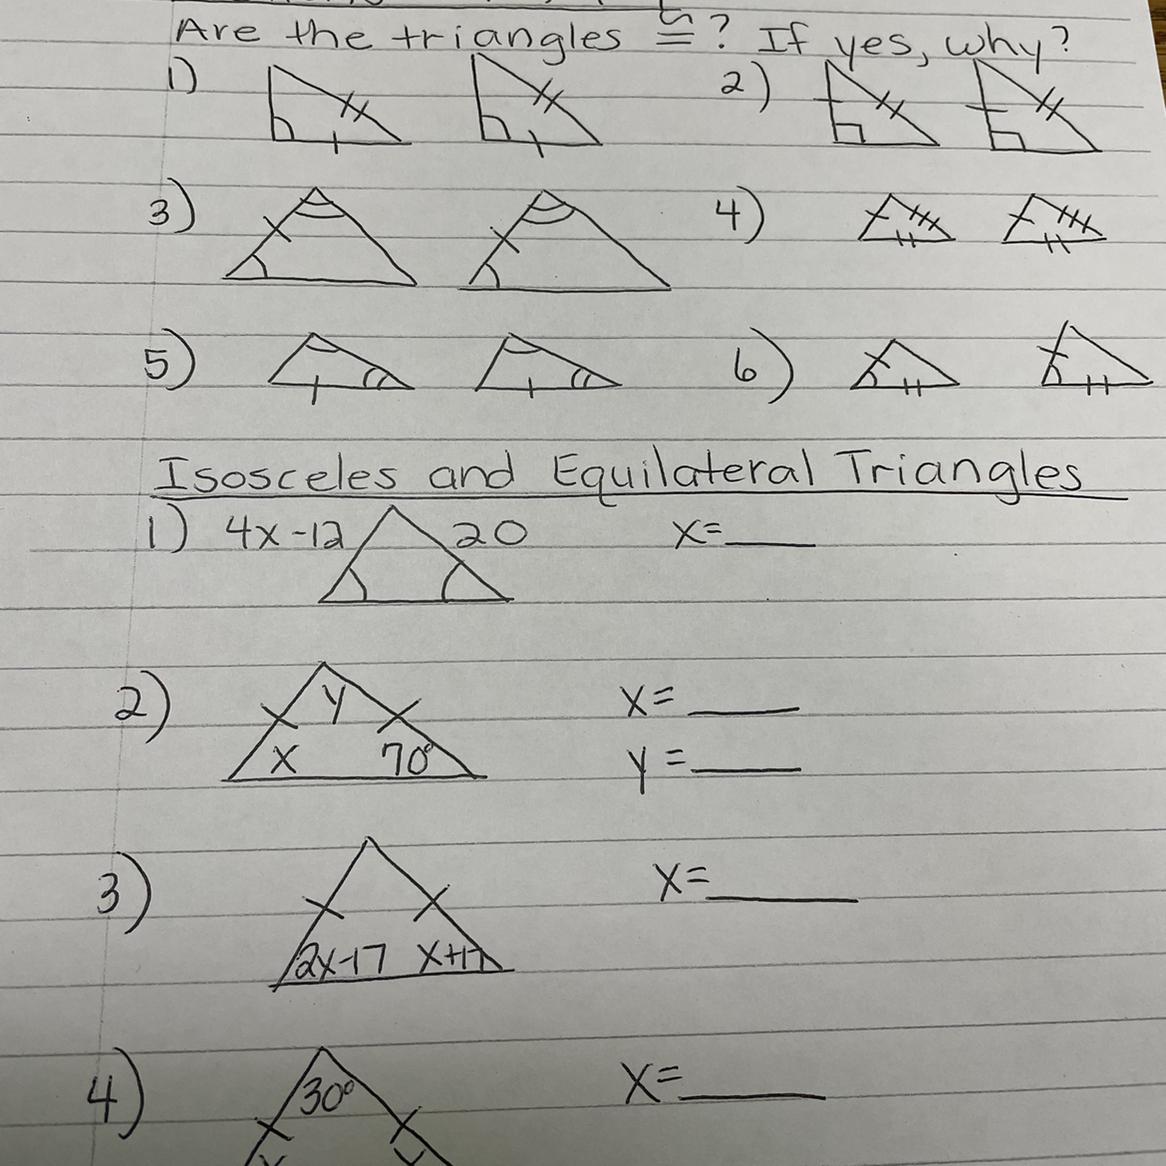 Are the triangles ≅? If yes, why?
1) 2)
3) 4)
5) 6)
Isosceles and Equilateral Triangles
1) 4x-12 20 x=
2) y x 70° x=
y=
3) 2x-17 x+17 x=
4) 30° x=